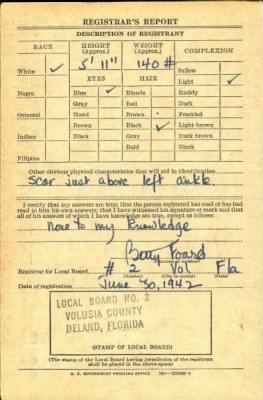 REGISTRAR'S REPORT
DESCRIPTION OF REGISTRANT
RACE HEIGHT (Approx.) WEIGHT (Approx.) COMPLEXION
White ✓ 5' 11" 140 # Sallow
EYES HAIR Light ✓
Negro Blue ✓ Blonde Ruddy
Gray Red Dark
Oriental Hazel Brown Freckled
Brown Black ✓ Light brown
Indian Black Gray Dark brown
Bald Black
Filipino
Other obvious physical characteristics that will aid in identification
Scar just above left ankle.
I certify that my answers are true; that the person registered has read or has had
read to him his own answers; that I have witnessed his signature or mark and that
all of his answers of which I have knowledge are true, except as follows:
none to my knowledge
Betty Foard
Registrar for Local Board # 2 Vol Fla
(Number) (City or county) (State)
Date of registration June 30, 1942
LOCAL BOARD NO. 2
VOLUSIA COUNTY
DELAND, FLORIDA
(STAMP OF LOCAL BOARD)
(The stamp of the Local Board having jurisdiction of the registrant
shall be placed in the above space)
U. S. GOVERNMENT PRINTING OFFICE